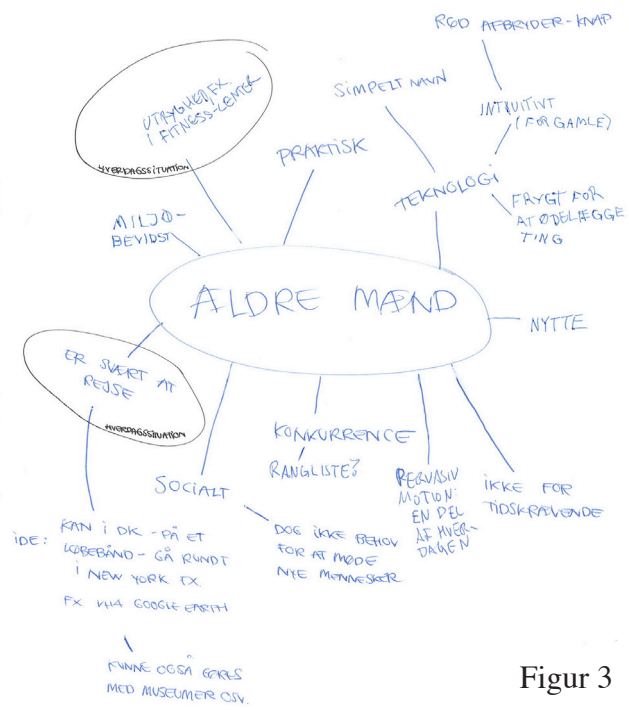 RØD AFBRYDER-KNAP
SIMPELT NAVN
INTUITIVT
(FOR GAMLE)
UTRYGHED FX.
I FITNESS-CENTER
HVERDAGSSITUATION
PRAKTISK
TEKNOLOGI
FRYGT FOR
AT ØDELÆGGE
TING
MILJØ-
BEVIDST
ÆLDRE MÆND
NYTTE
ER SVÆRT AT
REJSE
HVERDAGSSITUATION
KONKURRENCE
RANGLISTE?
SOCIALT
PERVASIV
MOTION:
EN DEL
AF HVER-
DAGEN
IKKE FOR
TIDSKRÆVENDE
DOG IKKE BEHOV
FOR AT MØDE
NYE MENNESKER
IDE: KAN I DK - PÅ ET
LØBEBÅND - GÅ RUNDT
I NEW YORK FX.
FX VHA GOOGLE EARTH
KUNNE OGSÅ GØRES
MED MUSEUMER OSV.
Figur 3